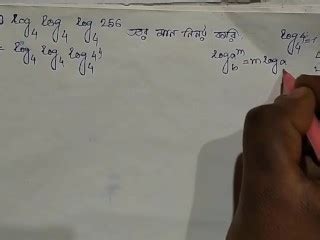 log₄ log₄ log₄ 256 এর মান নির্ণয় করি।
= log₄ log₄ log₄ 4⁴
log_b a^m = m log a
log₄ 4 = 1